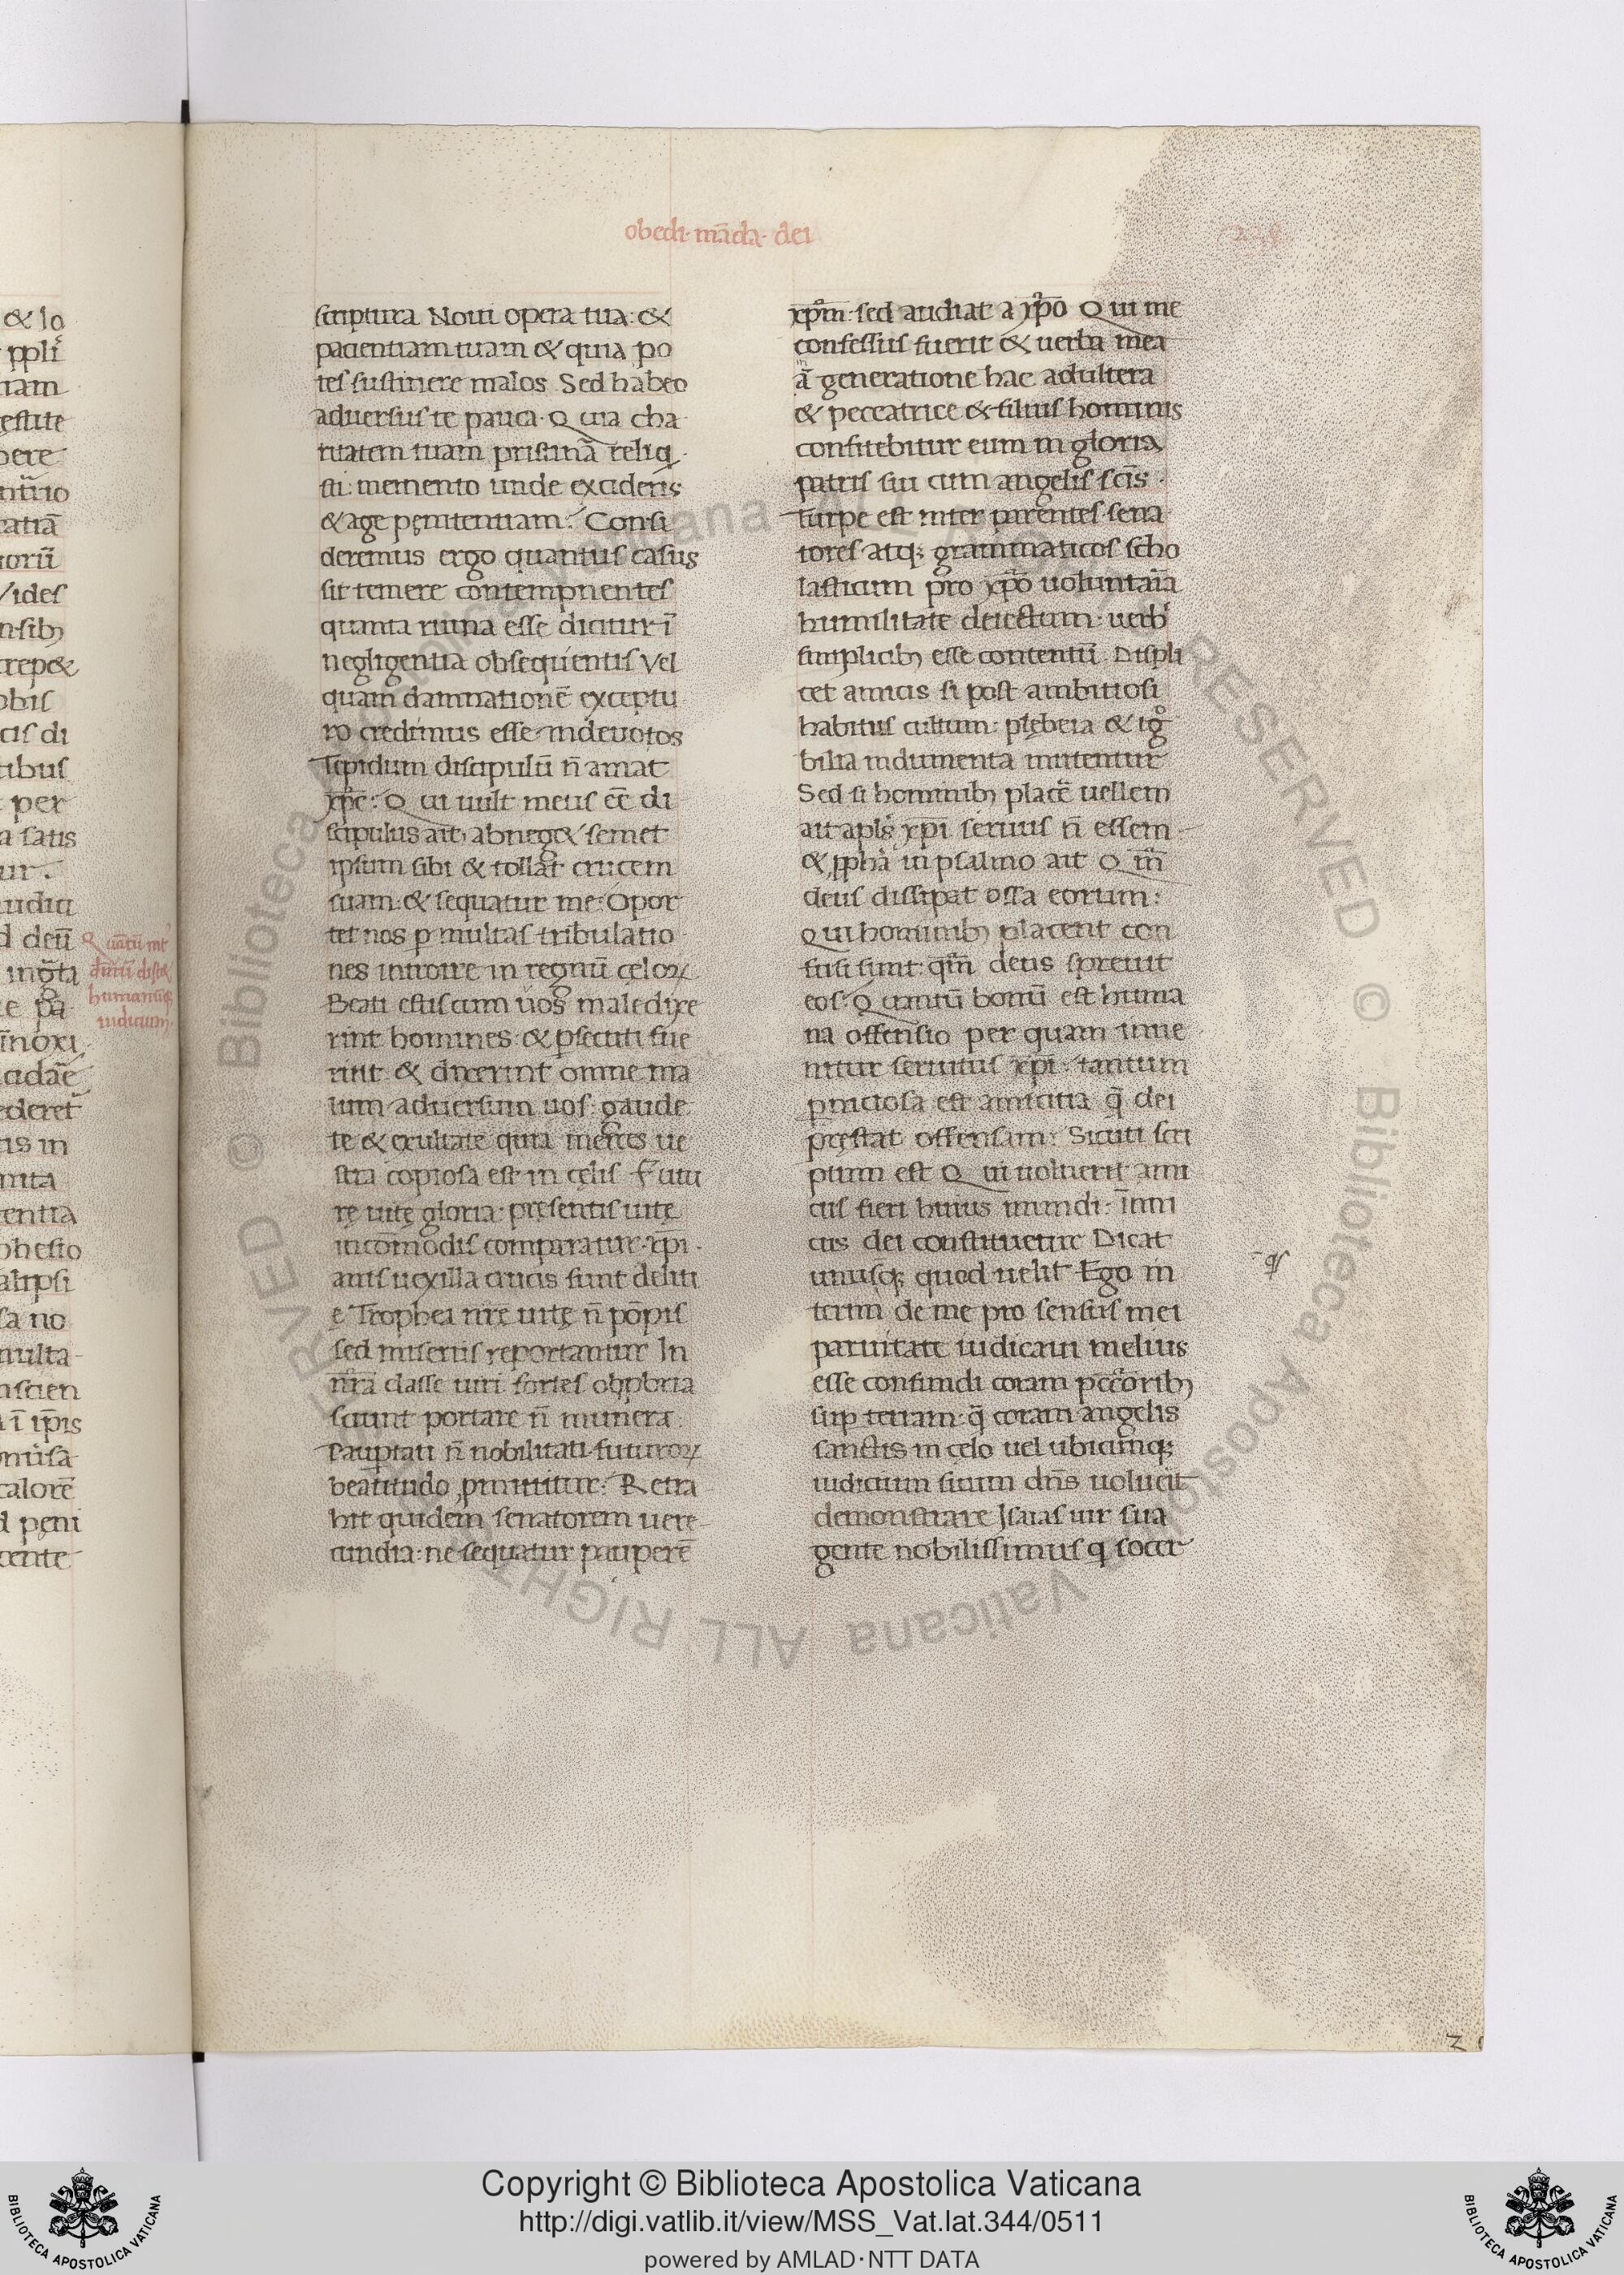 obedi· mada· dei
scriptura Noui opera tua: &
pacientiam tuam & quia po
tes sustinere malos Sed habeo
aduersus te pauca· Quia cha
ritatem tuam pristinā reliq
sti: memento unde excideris
& age pęnitentiam: Consi
deremus ergo quantus casus
sit temere contempnentes
quanta ruina esse dicitur ī
negligentia obsequentis Vel
quam damnationē exceptu
ro credimus esse indeuotos
Tepidum discipulū n̄ amat
xp̄c: Qui uult meus eē di
scipulus ait, abneg& semet
ipsum sibi & tollat crucem
suam: & sequatur me: Opor
tet nos p multas tribulatio
nes introire in regnū cęloꝝ
Beati estis cum uos maledixe
rint homines: & psecuti fue
rint & dixerint omne ma
lum aduersum uos: gaude
te & exultate quia merces ue
stra copiosa est in cęlis Futu
rę uitę gloria· pręsentis uitę
incōmodis comparatur· xp̄i
anis uexilla crucis sunt deliti
ę Trophea nr̄e uitę n̄ pōpis
sed miseriis reportantur In
nr̄a classe uiri fortes obpbria
sciunt portare n̄ munera
Paupertati n̄ nobilitati futuroꝝ
beatitudo pmittitur: Retra
hit quidem senatorem uere
cundia: ne sequatur pauperē
xp̄m: sed audiat a xp̄o Qui me
confessus fuerit & uerba mea
ā generatione hac adultera
& peccatrice & filius hominis
confitebitur eum in gloria
patris sui cum angelis sc̄is
Turpe est inter parentes sena
tores atq; grammaticos scho
lasticum pro xp̄o uoluntaria
humilitate deiectum· uerb
simplicib; esse contentū: Displi
cet amicis si post ambitiosi
habitus cultum: plebeia & ig
bilia indumenta mutentur
Sed si hominib; placē uellem
ait apls xp̄i seruus n̄ essem
& ppha in psalmo ait Qm̄
deus dissipat ossa eorum:
Qui hominib; placent con
fusi sunt: qm̄ deus spreuit
eos: Quantū bonū est huma
na offensio per quam inue
nitur seruitus xp̄i· tantum
pniciosa est amicitia q̄ dei
pręstat offensam: Sicuti scri
ptum est Qui uoluerit ami
cus fieri huius mundi: īimi
cus dei constituetur Dicat
unusq; quod uelit Ego in
terim de me pro sensus mei
paruitate iudicaui melius
esse confundi coram pecc̄orib;
sup terram: q̄ coram angelis
sanctis in celo uel ubicūnq;
iudicium suum dn̄s uoluerit
demonstrare Isaias uir sua
gente nobilissimus q̄ socer
Copyright © Biblioteca Apostolica Vaticana
http://digi.vatlib.it/view/MSS_Vat.lat.344/0511
powered by AMLAD·NTT DATA
BIBLIOTECA APOSTOLICA VATICANA
BIBLIOTECA APOSTOLICA VATICANA